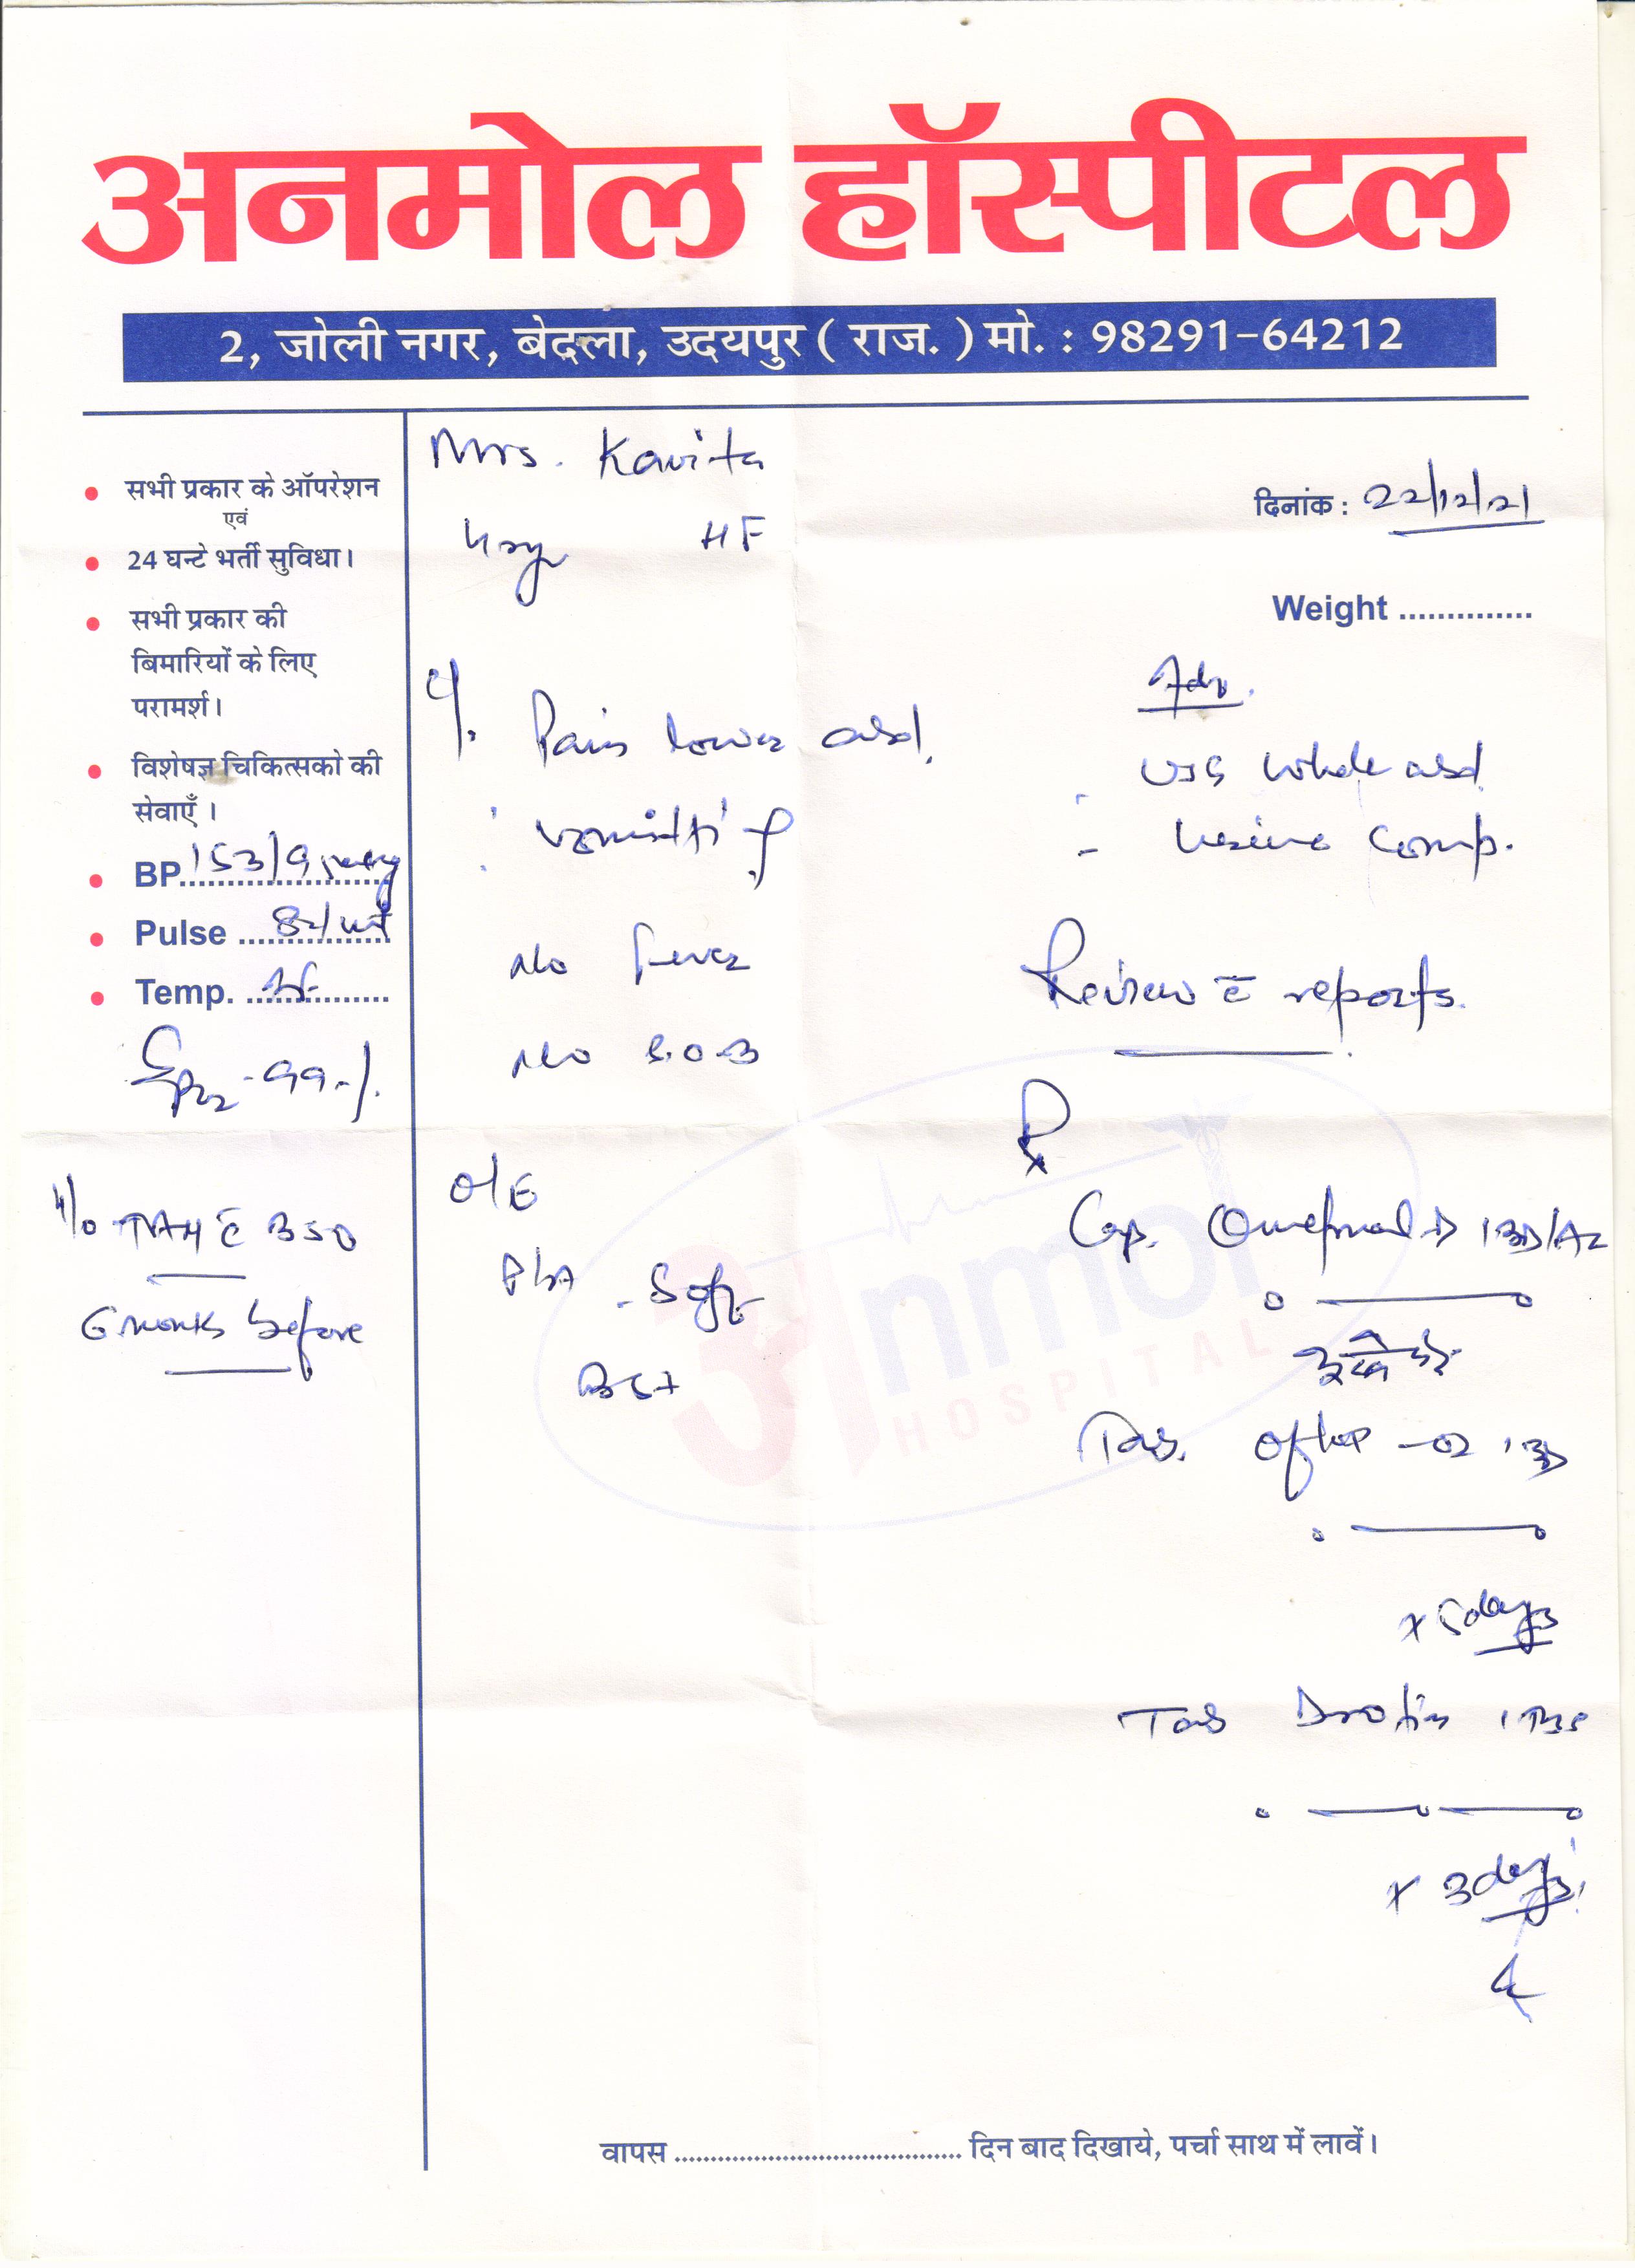 अनमोल हॉस्पीटल
2, जोली नगर, बेदला, उदयपुर ( राज. ) मो. : 98291-64212
Mrs. Kavita
दिनांक : 22/12/21
HF
Weight ..............
• सभी प्रकार के ऑपरेशन
एवं
• 24 घन्टे भर्ती सुविधा।
• सभी प्रकार की
बिमारियों के लिए
परामर्श।
• विशेषज्ञ चिकित्सको की
सेवाएँ ।
• BP 153/9
• Pulse 84/
• Temp.
SPO2 - 99%
H/o TAH c̄ BSO
6 months before
C/o Pain lower abd.
vomitting
No fever
No S.O.B
O/E
P/A - Soft
BS+
Adv.
USG whole abd
- Urine Comp.
Review c̄ reports.
Rx
Cap. 1 BD/AC
Tab. - OZ 1 BD
x 5 days
Tab Drotin 1 TDS
x 3 days
अnmol
HOSPITAL
वापस ........................................ दिन बाद दिखाये, पर्चा साथ में लावें।